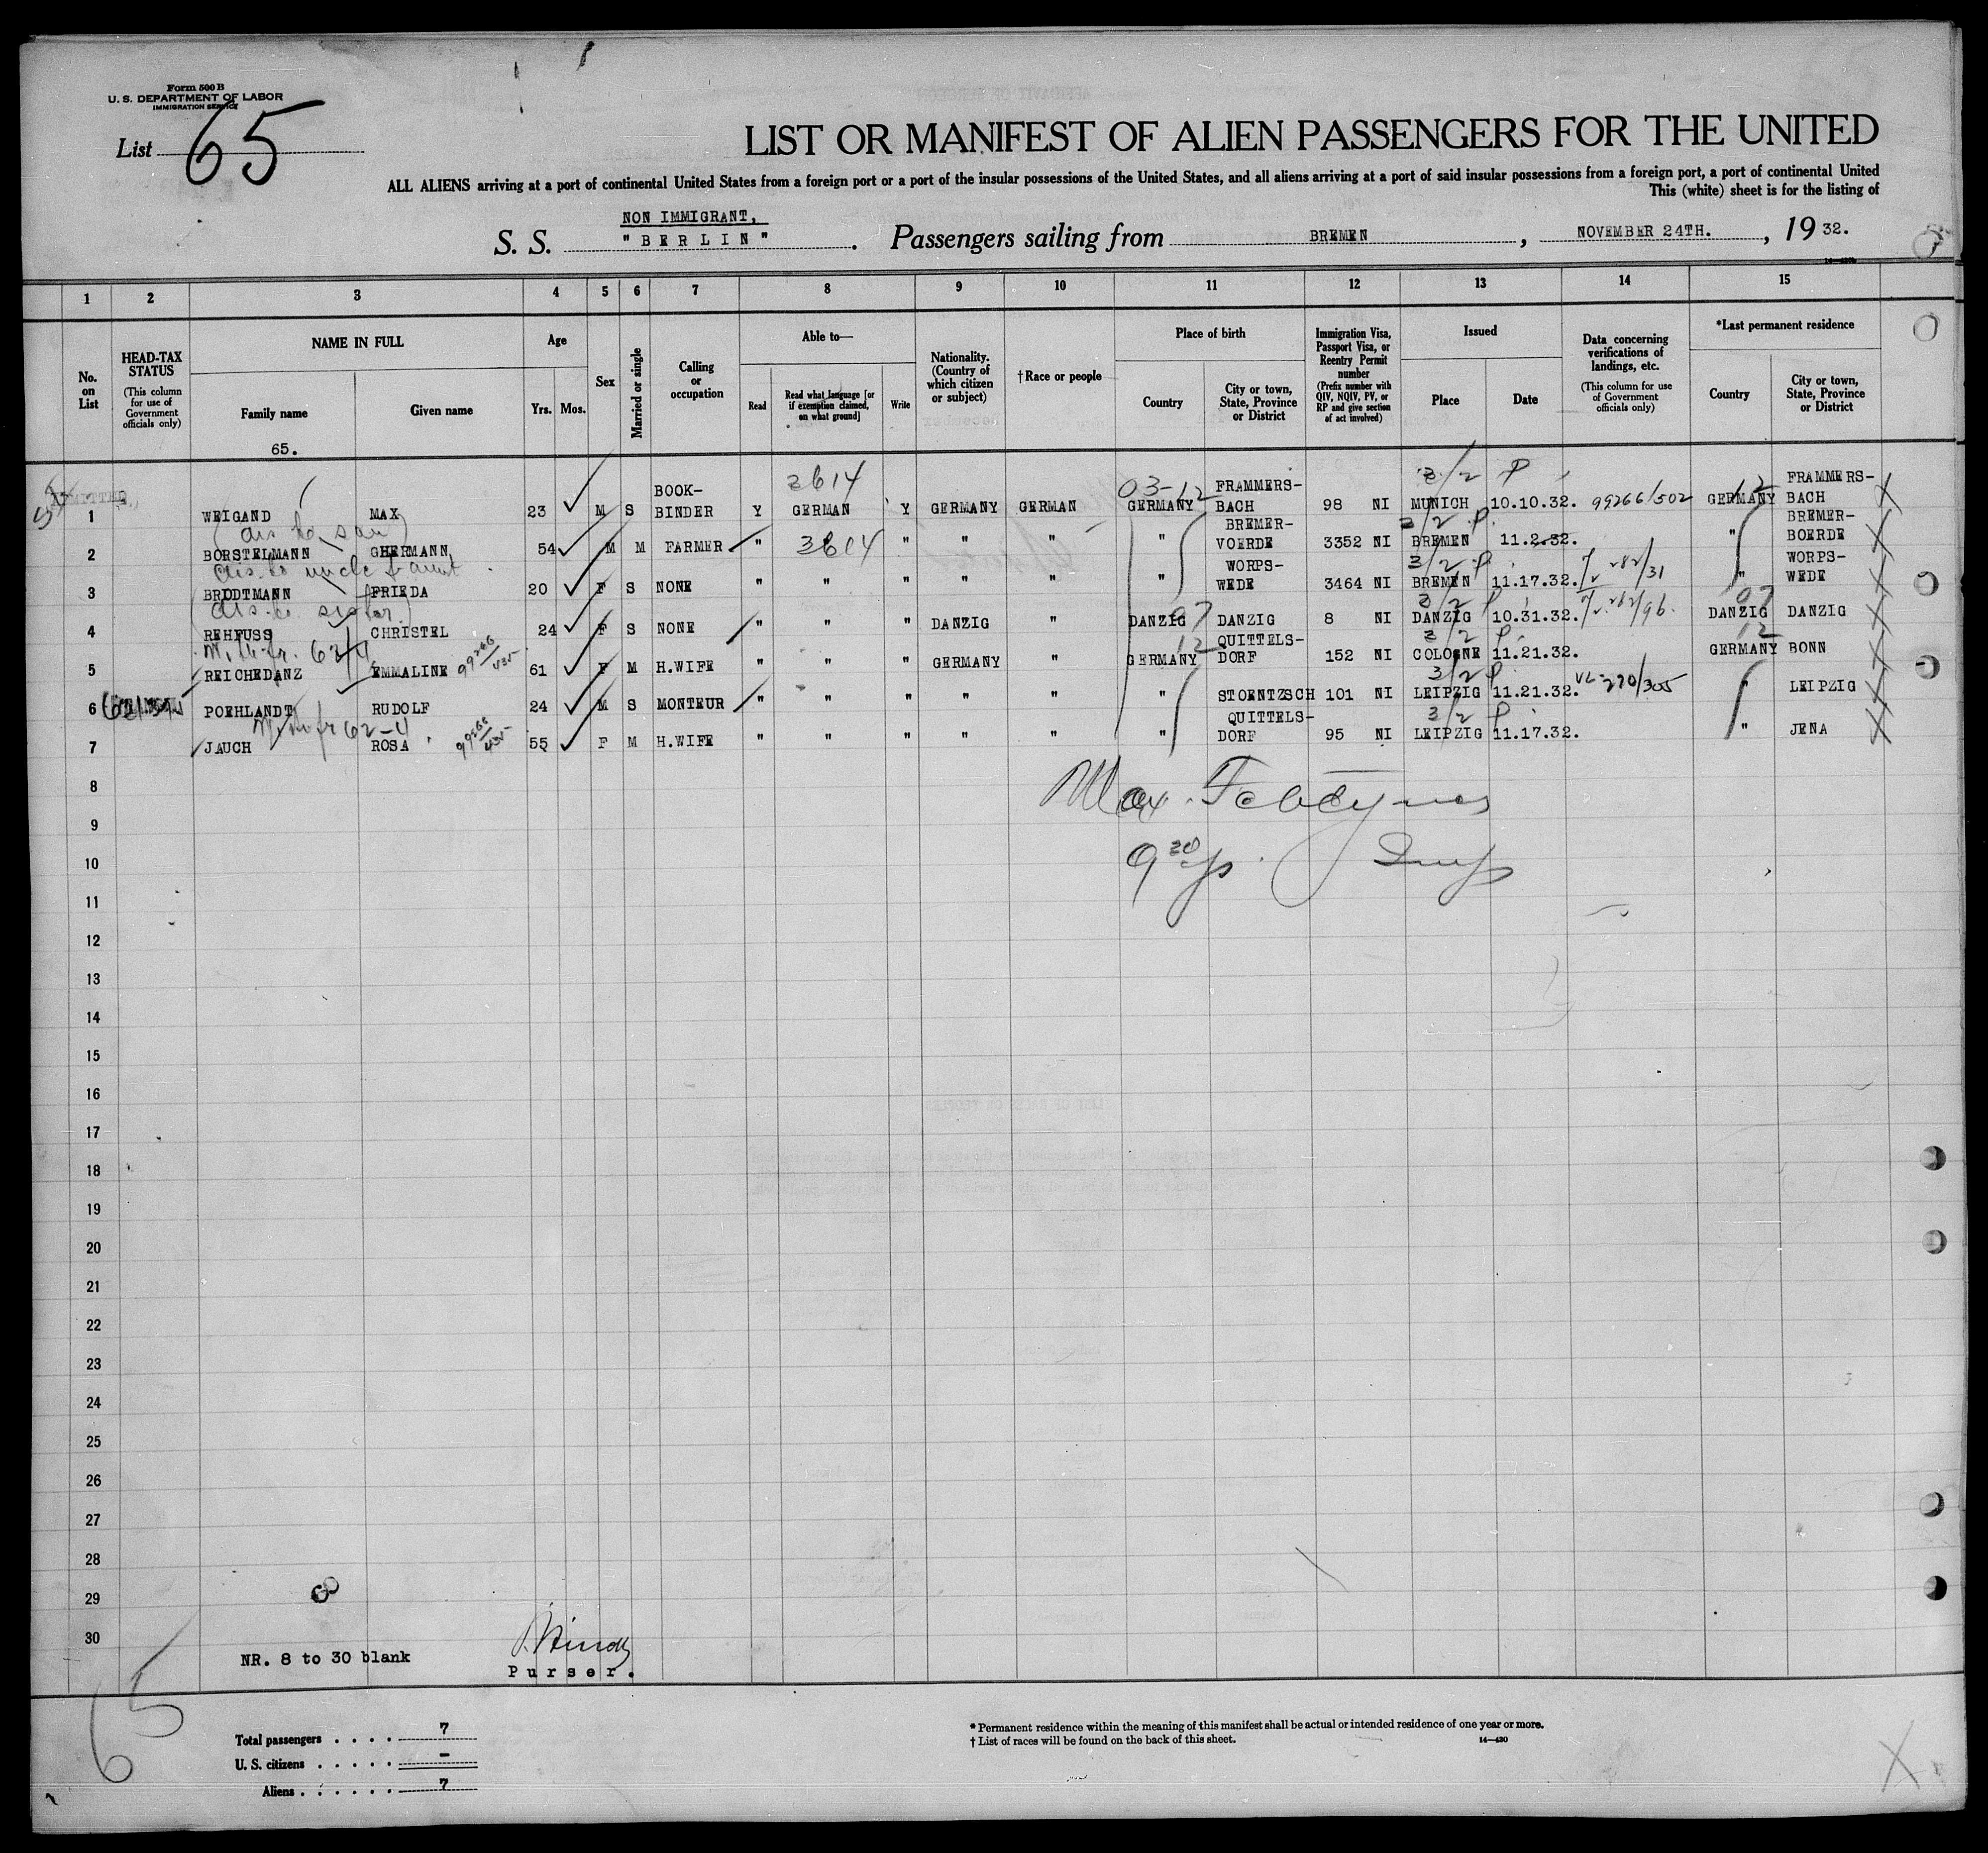 Form 500 B
U. S. DEPARTMENT OF LABOR
IMMIGRATION SERVICE
List 65
LIST OR MANIFEST OF ALIEN PASSENGERS FOR THE UNITED
ALL ALIENS arriving at a port of continental United States from a foreign port or a port of the insular possessions of the United States, and all aliens arriving at a port of said insular possessions from a foreign port, a port of continental United
This (white) sheet is for the listing of
NON IMMIGRANT,
S. S. "BERLIN". Passengers sailing from BREMEN, NOVEMBER 24TH., 19 32.
1 2 3 4 5 6 7 8 9 10 11 12 13 14 15
No. on List
HEAD-TAX STATUS (This column for use of Government officials only)
NAME IN FULL
Family name Given name
Age
Yrs. Mos.
Sex
Married or single
Calling or occupation
Able to—
Read Read what language [or if exemption claimed, on what ground] Write
Nationality. (Country of which citizen or subject)
†Race or people
Place of birth
Country City or town, State, Province or District
Immigration Visa, Passport Visa, or Reentry Permit number (Prefix number with QIV, NQIV, PV, or RP and give section of act involved)
Issued
Place Date
Data concerning verifications of landings, etc. (This column for use of Government officials only)
*Last permanent residence
Country City or town, State, Province or District
65.
ADMITTED
3614 03-12 3/2 P 12
1 WEIGAND MAX 23 M S BOOK-BINDER Y GERMAN Y GERMANY GERMAN GERMANY FRAMMERS-BACH 98 NI MUNICH 10.10.32. 99266/502 GERMANY FRAMMERS-BACH
3614 3/2 P.
2 BORSTELMANN GHERMANN, 54 M M FARMER " " " " " " BREMER-VOERDE 3352 NI BREMEN 11.2.32. " BREMER-BOERDE
uncle & aunt 3/2 P.
3 BRODTMANN FRIEDA 20 F S NONE " " " " " " WORPS-WEDE 3464 NI BREMEN 11.17.32. " WORPS-WEDE
sister 07 3/2 P 07
4 REHFUSS CHRISTEL 24 F S NONE " " " DANZIG " DANZIG DANZIG 8 NI DANZIG 10.31.32. DANZIG DANZIG
12 3/2 P. 12
5 REICHEDANZ EMMALINE 61 F M H.WIFE " " " GERMANY " GERMANY QUITTELS-DORF 152 NI COLOGNE 11.21.32. GERMANY BONN
3/2 P
6 POEHLANDT RUDOLF 24 M S MONTEUR " " " " " " STOENTZSCH 101 NI LEIPZIG 11.21.32. 270/305 " LEIPZIG
3/2 P
7 JAUCH ROSA 55 F M H.WIFE " " " " " " QUITTELS-DORF 95 NI LEIPZIG 11.17.32. " JENA
8
9
10
11
12
13
14
15
16
17
18
19
20
21
22
23
24
25
26
27
28
29
30
NR. 8 to 30 blank
Purser.
65
Total passengers . . . . 7
U. S. citizens . . . . . –
Aliens . . . . . . 7
* Permanent residence within the meaning of this manifest shall be actual or intended residence of one year or more.
† List of races will be found on the back of this sheet. 14—430